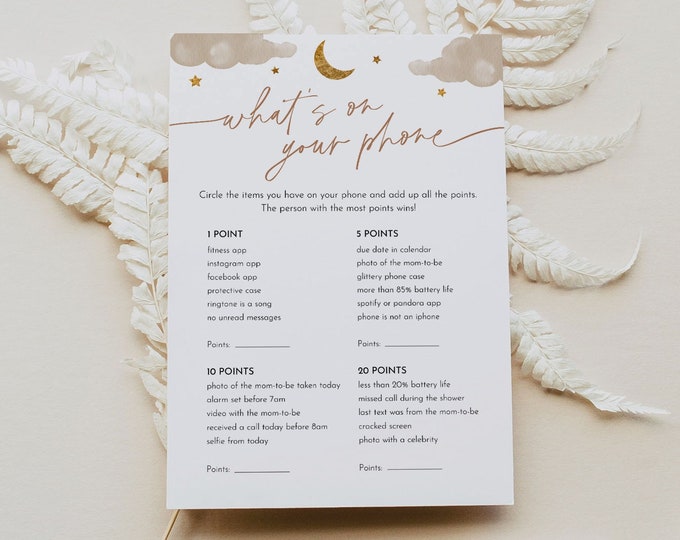 what's on
your phone
Circle the items you have on your phone and add up all the points.
The person with the most points wins!
1 POINT
fitness app
instagram app
facebook app
protective case
ringtone is a song
no unread messages
Points: ____________
5 POINTS
due date in calendar
photo of the mom-to-be
glittery phone case
more than 85% battery life
spotify or pandora app
phone is not an iphone
Points: ____________
10 POINTS
photo of the mom-to-be taken today
alarm set before 7am
video with the mom-to-be
received a call today before 8am
selfie from today
Points: ____________
20 POINTS
less than 20% battery life
missed call during the shower
last text was from the mom-to-be
cracked screen
photo with a celebrity
Points: ____________